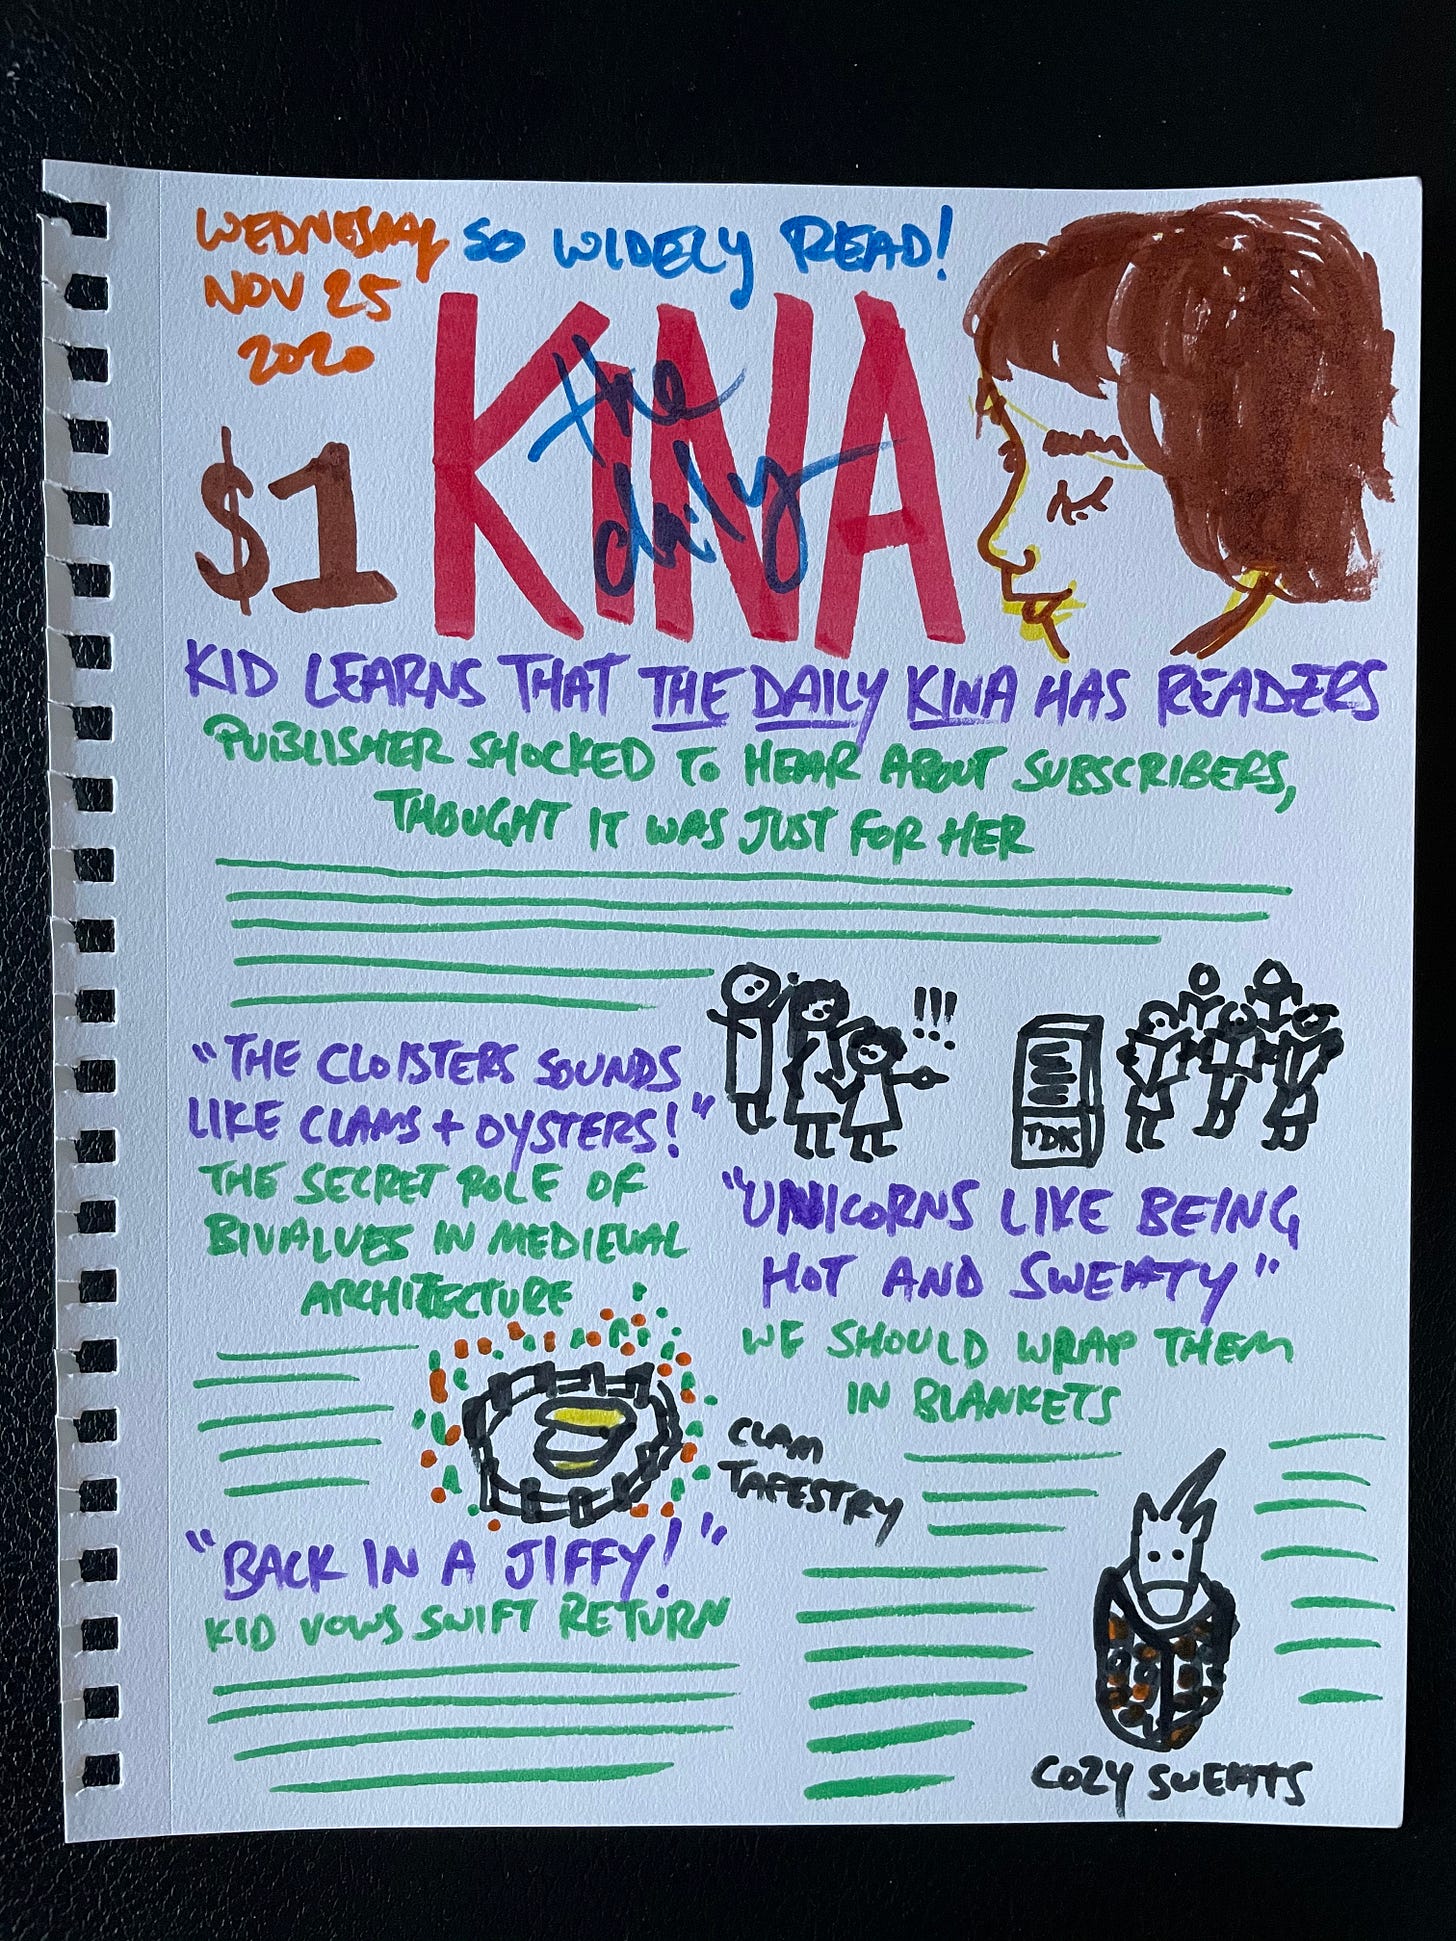 WEDNESDAY
NOV 25
2020
SO WIDELY READ!
$1
the
daily
KINA
KID LEARNS THAT THE DAILY KINA HAS READERS
PUBLISHER SHOCKED TO HEAR ABOUT SUBSCRIBERS,
THOUGHT IT WAS JUST FOR HER
!!!
TDK
"THE CLOISTERS SOUNDS
LIKE CLAMS + OYSTERS!"
THE SECRET ROLE OF
BIVALVES IN MEDIEVAL
ARCHITECTURE
CLAM
TAPESTRY
"UNICORNS LIKE BEING
HOT AND SWEATY"
WE SHOULD WRAP THEM
IN BLANKETS
COZY SWEATS
"BACK IN A JIFFY!"
KID VOWS SWIFT RETURN